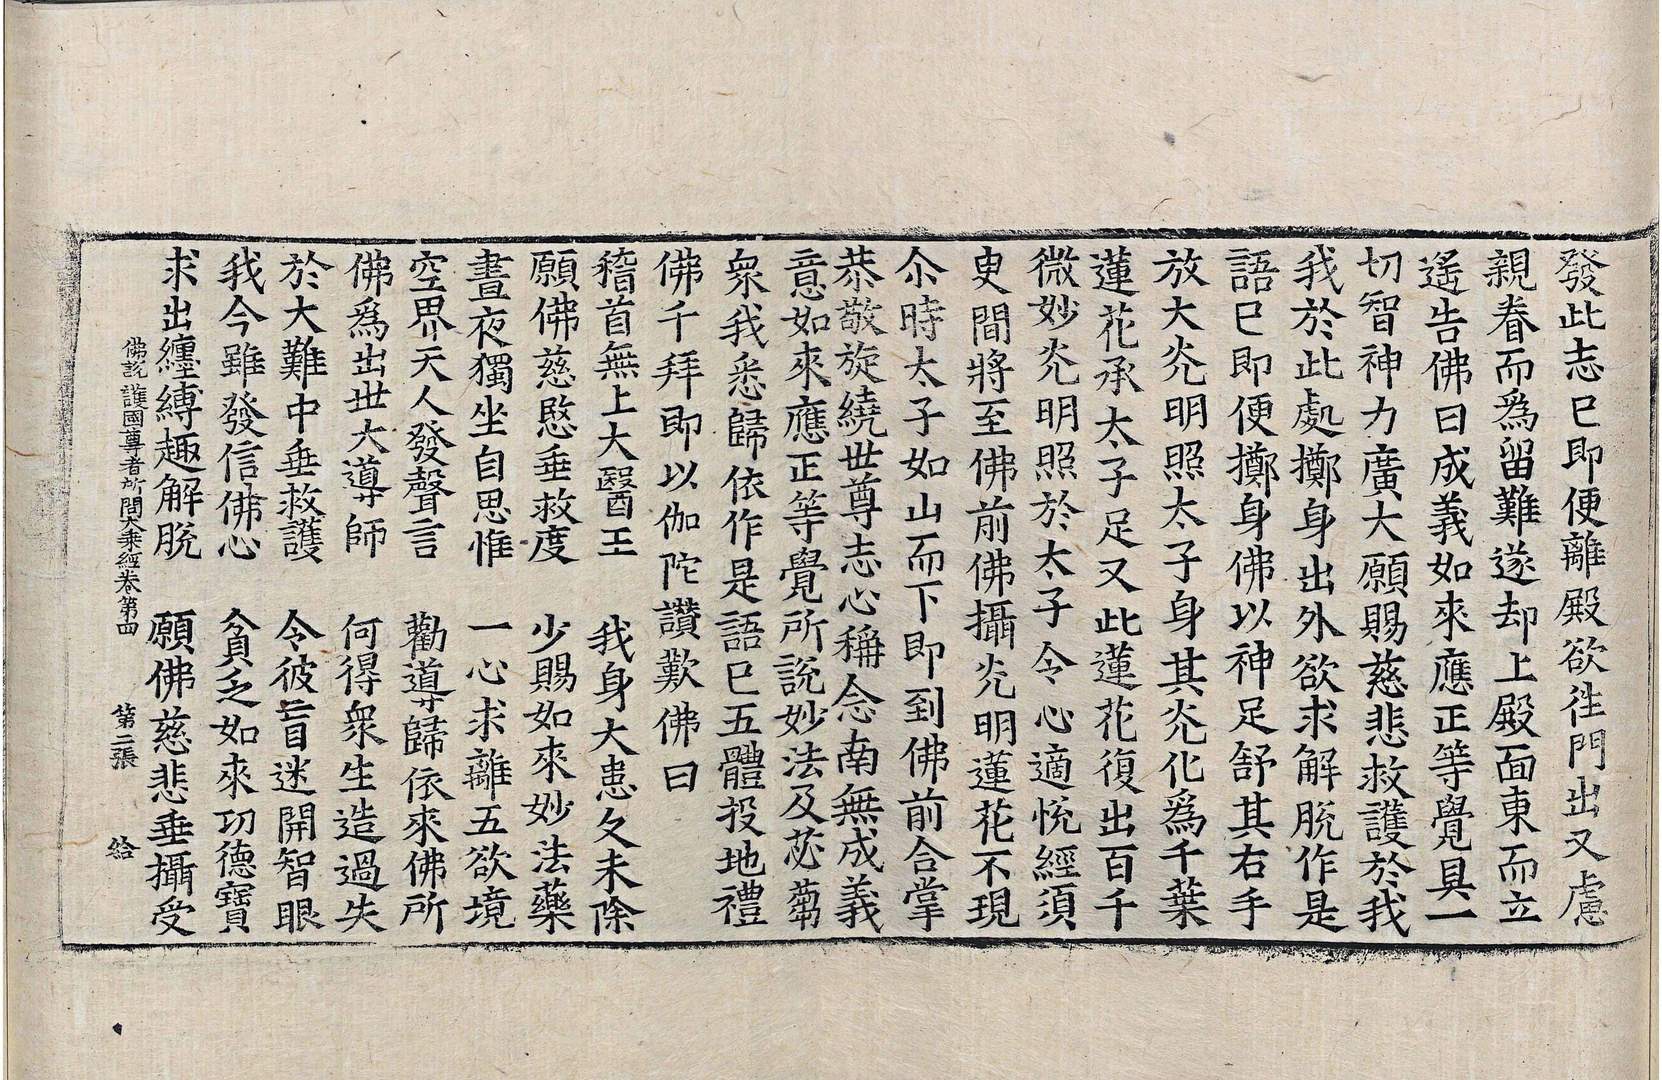 發此志已即便離殿欲往門出又慮
親眷而為留難遂却上殿面東而立
遙告佛曰成義如來應正等覺具一
切智神力廣大願賜慈悲救護於我
我於此處擲身出外欲求解脫作是
語已即便擲身佛以神足舒其右手
放大光明照太子身其光化為千葉
蓮花承太子足又此蓮花復出百千
微妙光明照於太子令心適悅經須
臾間將至佛前佛攝光明蓮花不現
尒時太子如山而下即到佛前合掌
恭敬旋繞世尊志心稱念南無成義
意如來應正等覺所說妙法及苾蒭
眾我悉歸依作是語已五體投地禮
佛千拜即以伽陀讚歎佛曰
稽首無上大醫王　我身大患久未除
願佛慈愍垂救度　少賜如來妙法藥
晝夜獨坐自思惟　一心求離五欲境
空界天人發聲言　勸導歸依來佛所
佛為出世大導師　何得眾生造過失
於大難中垂救護　令彼盲迷開智眼
我今雖發信佛心　貧乏如來功德寶
求出纏縛趣解脫　願佛慈悲垂攝受
佛說護國尊者所問大乘經卷第四　第二張　給